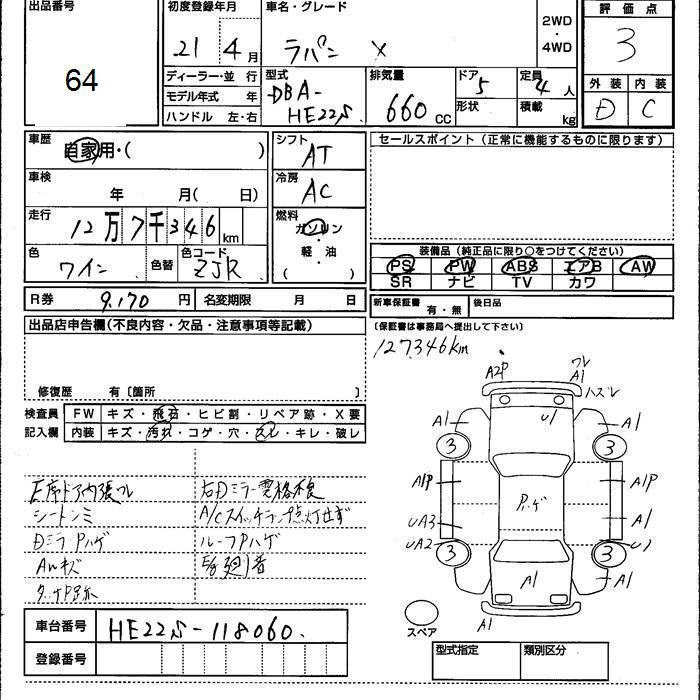 出品番号
64
初度登録年月
21 4月
車名・グレード
ラパン X
2WD
・
4WD
評価点
3
ディーラー・並 行
モデル年式 年
ハンドル 左・右
型式
DBA-
HE22S
排気量
660 CC
ドア 5
形状
定員 4 人
積載 kg
外装 内装
D C
車歴
自家用・( )
シフト
AT
セールスポイント (正常に機能するものに限ります)
車検
年 月( 日)
冷房
AC
走行
12万7千346 km
燃料
ガソリン
・
軽・油
( )
色
ワイン
色替
色コード
ZJR
装備品 (純正品に限り○をつけてください)
PS PW ABS エアB AW
SR ナビ TV カワ
R券 9,170 円
名変期限 月 日
新車保証書 有・無
後日品
出品店申告欄(不良内容・欠品・注意事項等記載)
(保証書は事務局へ提出して下さい)
127,346km
修復歴 有〔箇所 〕
検査員
記入欄
FW キズ・飛石・ヒビ割・リペア跡・X要
内装 キズ・汚れ・コゲ・穴・スレ・キレ・破レ
シートシミ
DミラPハゲ
AWキズ
右Dミラー電格不良
A/Cスイッチランプ点灯せず
ルーフPハゲ
A2P
ワレ
A1
ハズレ
A1
U1
A1
3
3
A1P
A1P
Pハゲ
UA3
A1
UA2
U1
3
3
A1
A1
A1
A1
スペア
車台番号 HE22S-118060
登録番号
型式指定
類別区分